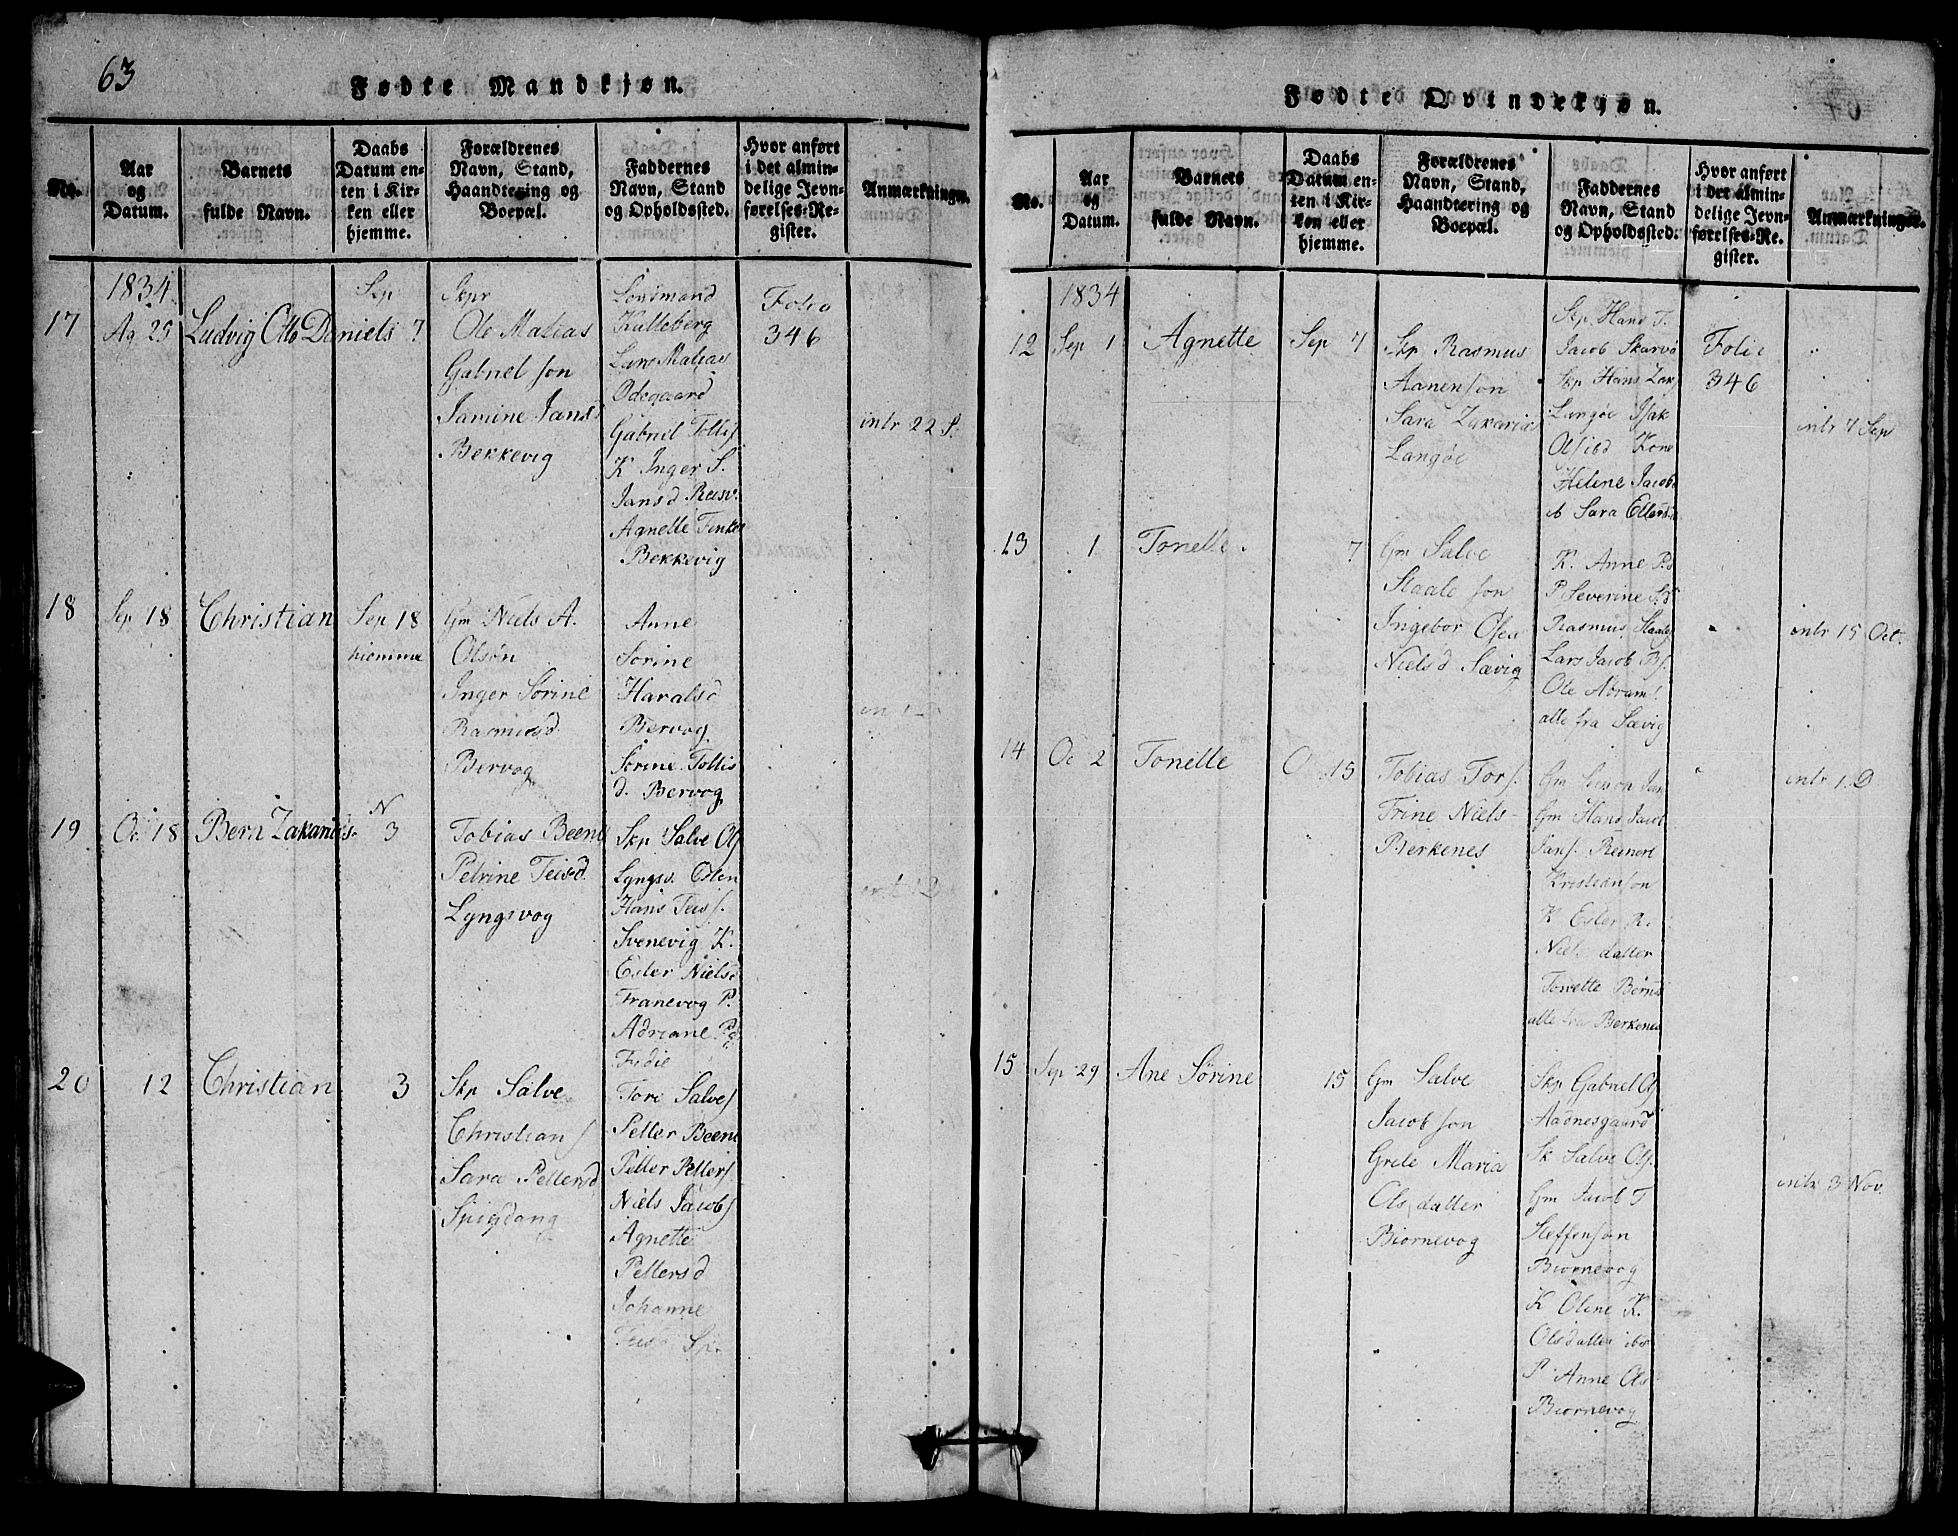 63
Fødte Mandkjøn.
No.
Aar
og
Datum.
Barnets
fulde Navn.
Daabs
Datum en-
ten i Kir-
ken eller
hjemme.
Forældrenes
Navn, Stand,
Haandtering og
Boepæl.
Faddernes
Navn, Stand
og Opholdssted.
Hvor anført
i det almin-
delige Jevn-
førelses-Re-
gister.
Anmærkninger.
17
1834
Ag 25
Ludvig Otto Daniels
Sep
7
Skpr
Ole Matias
Gabriel son
Jamine Jansd
Bekkevig
Lensmand
Kulleberg
Lars Matias
Odegaard
Gabriel Tollis
K Inger S.
Jansd Reisv.
Agnette
Bekkevig
Folio
346
intr 22 S.
18
Sep 18
Christian
Sep 18
hiemme
Gm Niels A.
Olsøn
Inger Sørine
Rasmusd
Bervog
Anne
Sorine
Haralsd
Bervog
Sorine Tollis
d. Bervog
19
Oc 18
Bern Zakarias
N
3
Tobias Beens
Petrine Teisd.
Lyngsvog
Skp Salve Ols
Lyngsv. Osten
Hans Teis f.
Svenevig K.
Ester Niels
Franevog P.
Adriane Pd
Fidie
20
12
Christian
3
Skp Salve
Christians
Sara Pettersd
Spigdang
Tore Salves
Petter Beens
Petter Petters
Niels Jacobs
Agnette
Pettersd
Johanne
Fødte Qvindekjøn.
No.
Aar
og
Datum.
Barnets
fulde Navn.
Daabs
Datum en-
ten i Kir-
ken eller
hjemme.
Forældrenes
Navn, Stand,
Haandtering og
Boepæl.
Faddernes
Navn, Stand
og Opholdssted.
Hvor anført
i det almin-
delige Jevn-
førelses-Re-
gister.
Anmærkninger.
12
1834
Sep 1
Agnette
Sep 7
Skp Rasmus
Aanenson
Sara Zakarias
Langøe
Skp Hans T.
Jacob Skarvø
Skp Hans Zak
Langøe Isak
Kone
Helene Jacob.
Sara Ellers
Folio
346
intr 7 Sep
13
1
Tonette
7
Gm Salve
Staale son
Ingebor Osea
Niels d Sævig
K. Anne P.d
P Severine S.d
Rasmus Staales
Lars Jacob
Ole Abram
alle fra Sævig
intr 15 Oct.
14
Oc 2
Tonette
O 15
Tobias Tors
Trine Niels-
Berkenes
Gm Jan
Gm Hans Jacob
Jans. Reinert
Kristianson
K Ester R.
Niels datter
Tonette Børns
alle fra Berkenes
intr 1. D
15
Sep 29
Ane Sørine
15
Gm Salve
Jacob son
Grete Maria
Ols datter
Biornevog
Skp Gabriel Ols
Aadnesgaard
Sk Salve Ols.
Gm Jacob T
Steffenson
Biornevog
K Oline K.
Olsdatter
P Anne Ols
Biornevog
intr 3 Nov.